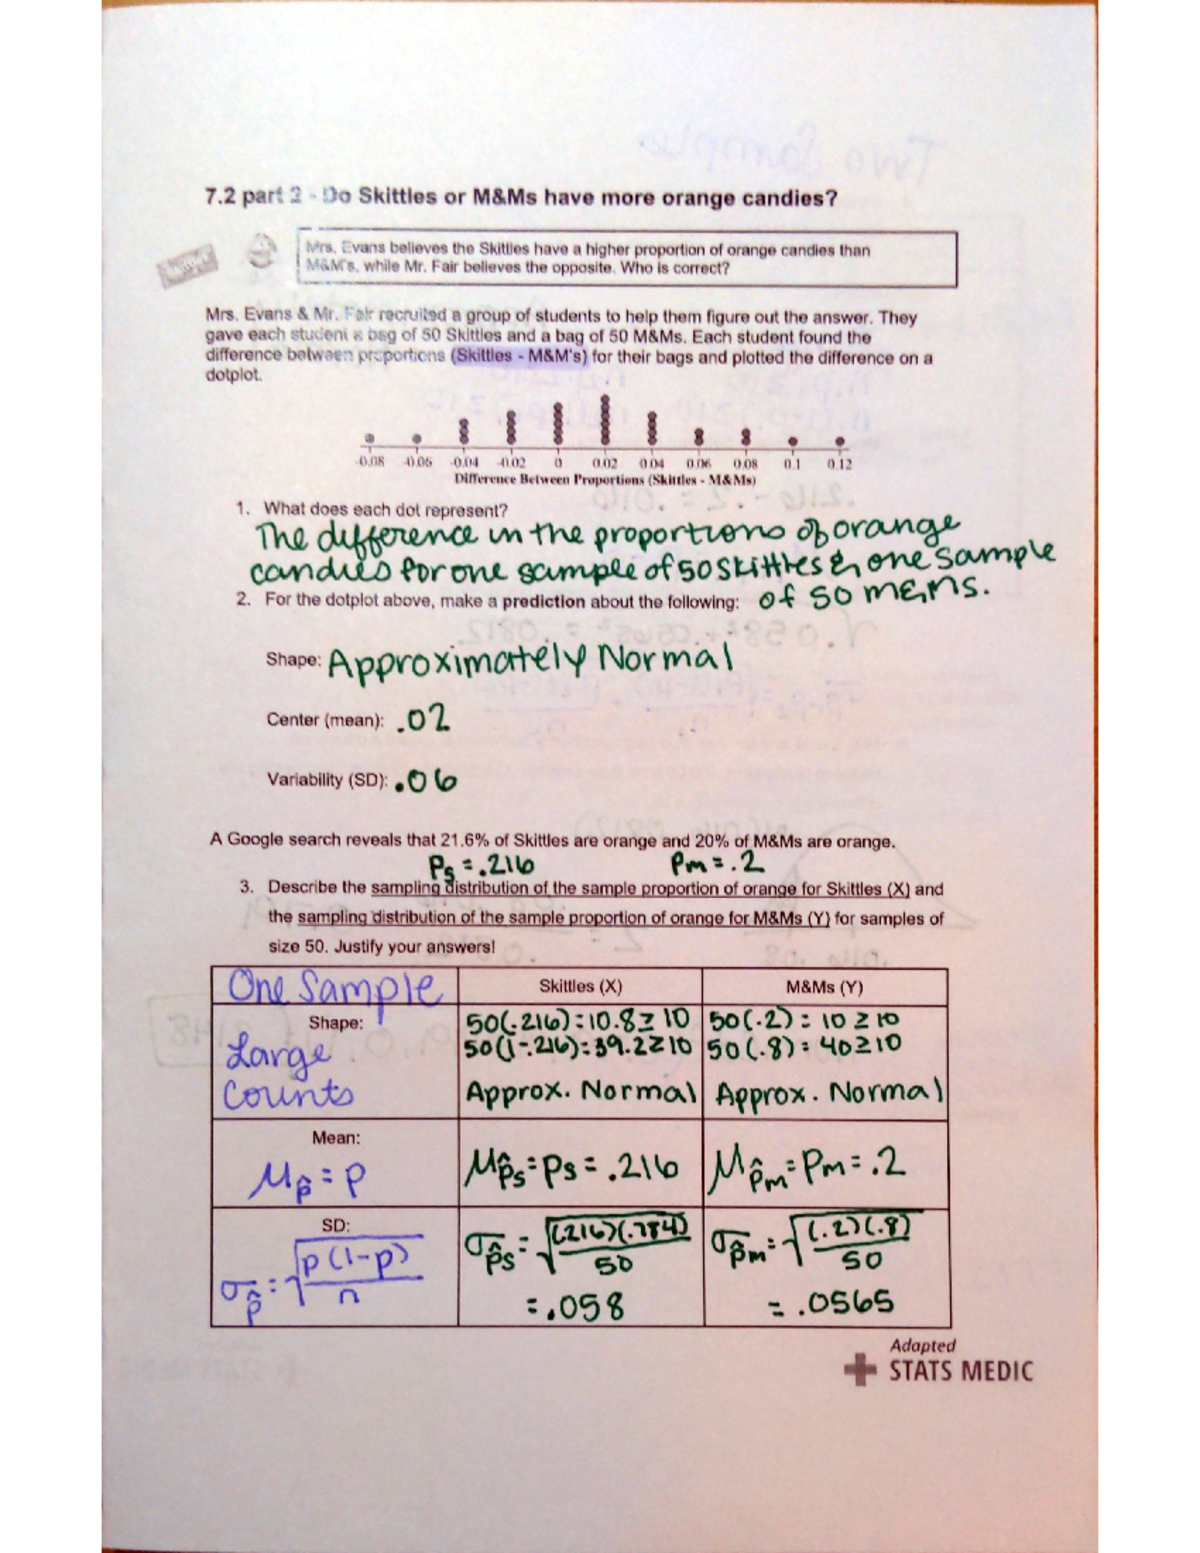 7.2 part 2 - Do Skittles or M&Ms have more orange candies?
Mrs. Evans believes the Skittles have a higher proportion of orange candies than
M&M's, while Mr. Fair believes the opposite. Who is correct?
Mrs. Evans & Mr. Fair recruited a group of students to help them figure out the answer. They
gave each student a bag of 50 Skittles and a bag of 50 M&Ms. Each student found the
difference between proportions (Skittles - M&M's) for their bags and plotted the difference on a
dotplot.
-0.08 -0.06 -0.04 -0.02 0 0.02 0.04 0.06 0.08 0.1 0.12
Difference Between Proportions (Skittles - M&Ms)
1. What does each dot represent?
The difference in the proportions of orange
candies for one sample of 50 skittles & one sample
of 50 m&ms.
2. For the dotplot above, make a prediction about the following:
Shape: Approximately Normal
Center (mean): .02
Variability (SD): .06
A Google search reveals that 21.6% of Skittles are orange and 20% of M&Ms are orange.
Ps = .216 Pm = .2
3. Describe the sampling distribution of the sample proportion of orange for Skittles (X) and
the sampling distribution of the sample proportion of orange for M&Ms (Y) for samples of
size 50. Justify your answers!
One Sample Skittles (X) M&Ms (Y)
Shape: 50(.216) = 10.8 ≥ 10 50(.2) = 10 ≥ 10
Large 50(1-.216) = 39.2 ≥ 10 50(.8) = 40 ≥ 10
Counts Approx. Normal Approx. Normal
Mean:
μp̂ = p μp̂s = ps = .216 μp̂m = pm = .2
SD:
σp̂ = √(p(1-p)/n) σp̂s = √((.216)(.784)/50) σp̂m = √((.2)(.8)/50)
= .058 = .0565
Adapted
STATS MEDIC